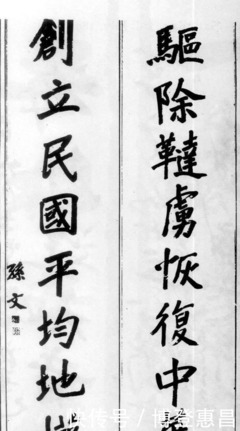 驅除韃虜恢復中
創立民國平均地
孫文
快传号 / 博登惠昌